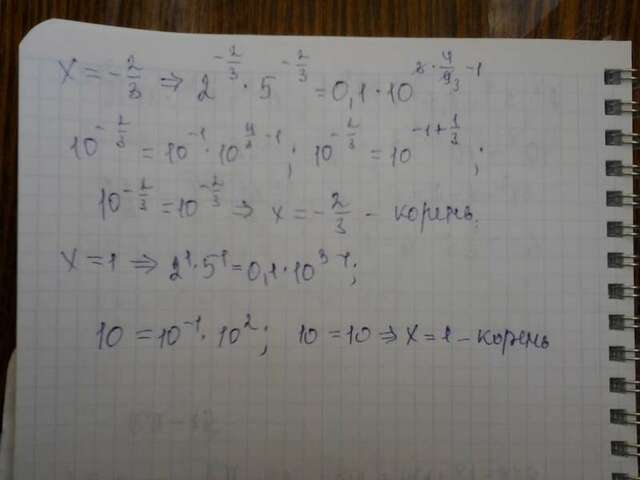 x = -2/3 ⇒ 2^(-2/3) · 5^(-2/3) = 0,1 · 10^(3 · 4/9₃ - 1)
10^(-2/3) = 10^(-1) · 10^(4/3 - 1); 10^(-2/3) = 10^(-1 + 1/3);
10^(-2/3) = 10^(-2/3) ⇒ x = -2/3 - корень.
x = 1 ⇒ 2^1 · 5^1 = 0,1 · 10^(3-1);
10 = 10^(-1) · 10^2; 10 = 10 ⇒ x = 1 - корень